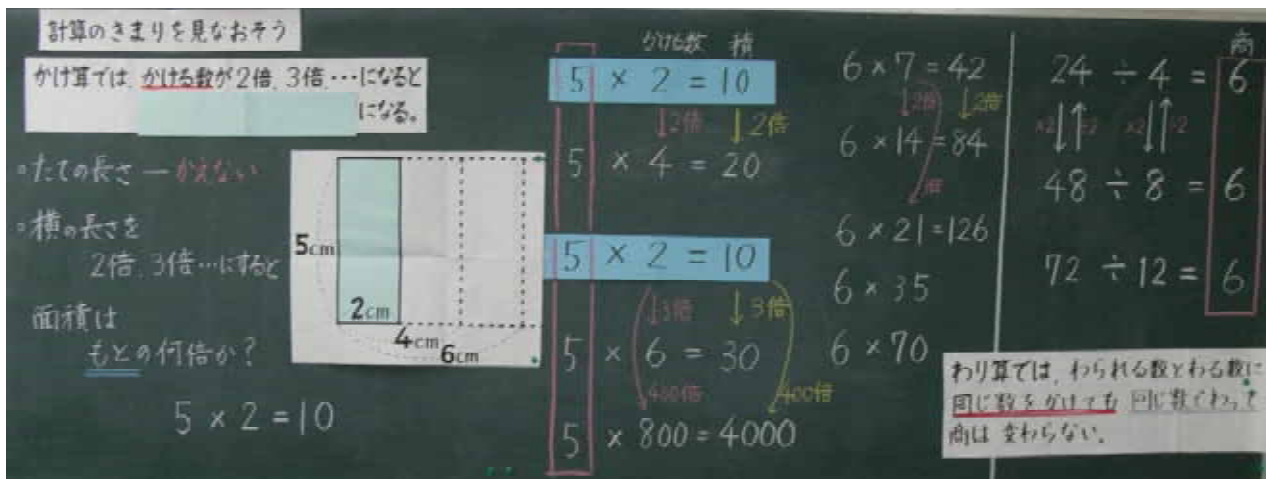 計算のきまりを見なおそう
かけ算では、かける数が2倍、3倍、…になると
になる。
◦たての長さ―かえない
◦横の長さを
2倍、3倍…にすると
面積は
もとの何倍か?
5 × 2 = 10
5cm
2cm
4cm
6cm
かける数 積
5 × 2 = 10
↓2倍 ↓2倍
5 × 4 = 20
5 × 2 = 10
↓3倍 ↓3倍
5 × 6 = 30
400倍 400倍
5 × 800 = 4000
6 × 7 = 42
↓2倍 ↓2倍
6 × 14 = 84
倍
6 × 21 = 126
6 × 35
6 × 70
商
24 ÷ 4 = 6
×2↓↑÷2 ×2↓↑÷2
48 ÷ 8 = 6
72 ÷ 12 = 6
わり算では、わられる数とわる数に
同じ数をかけても 同じ数でわって
商は変わらない。